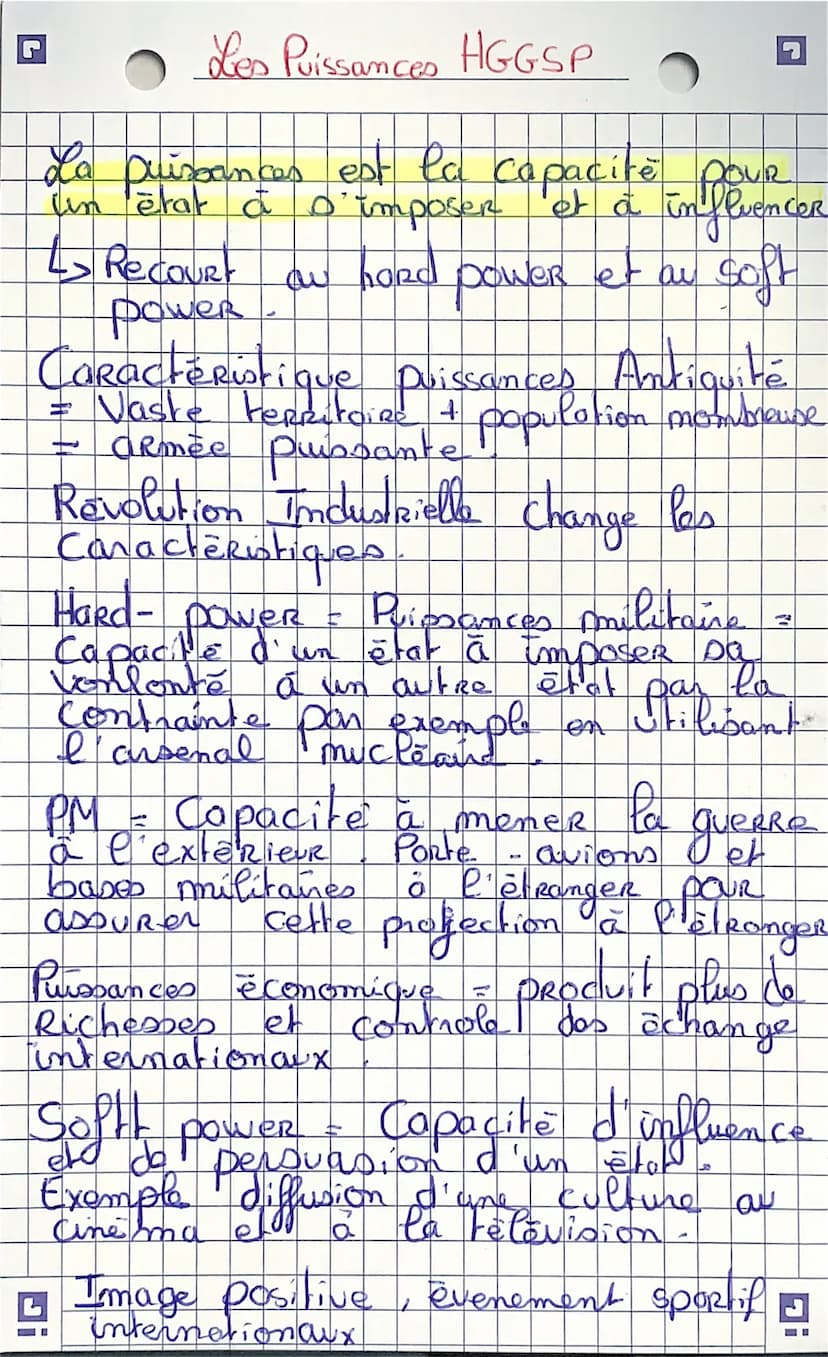 Les Puissances HGGSP
La puissances est la capacité pour
un état à s'imposer et à influencer
↳ Recourt au hard power et au soft
power.
Caractéristique puissances Antiquité
= Vaste territoire + population nombreuse
= armée puissante.
Révolution Industrielle change les
caractéristiques.
Hard-power = Puissances militaire =
Capacité d'un état à imposer sa
vonlonté à un autre état par la
contrainte par exemple en utilisant
l'arsenal nucléaire.
PM = Capacité à mener la guerre
à l'extérieur. Porte-avions et
bases militaires à l'étranger pour
assurer cette projection à l'étranger
Puissances économique = produit plus de
Richesses et contrôle des échange
internationaux.
Softt power = Capacité d'influence
et de persuasion d'un état.
Exemple diffusion d'une culture au
cinéma et à la télévision.
Image positive, évenement sportif
internetionaux